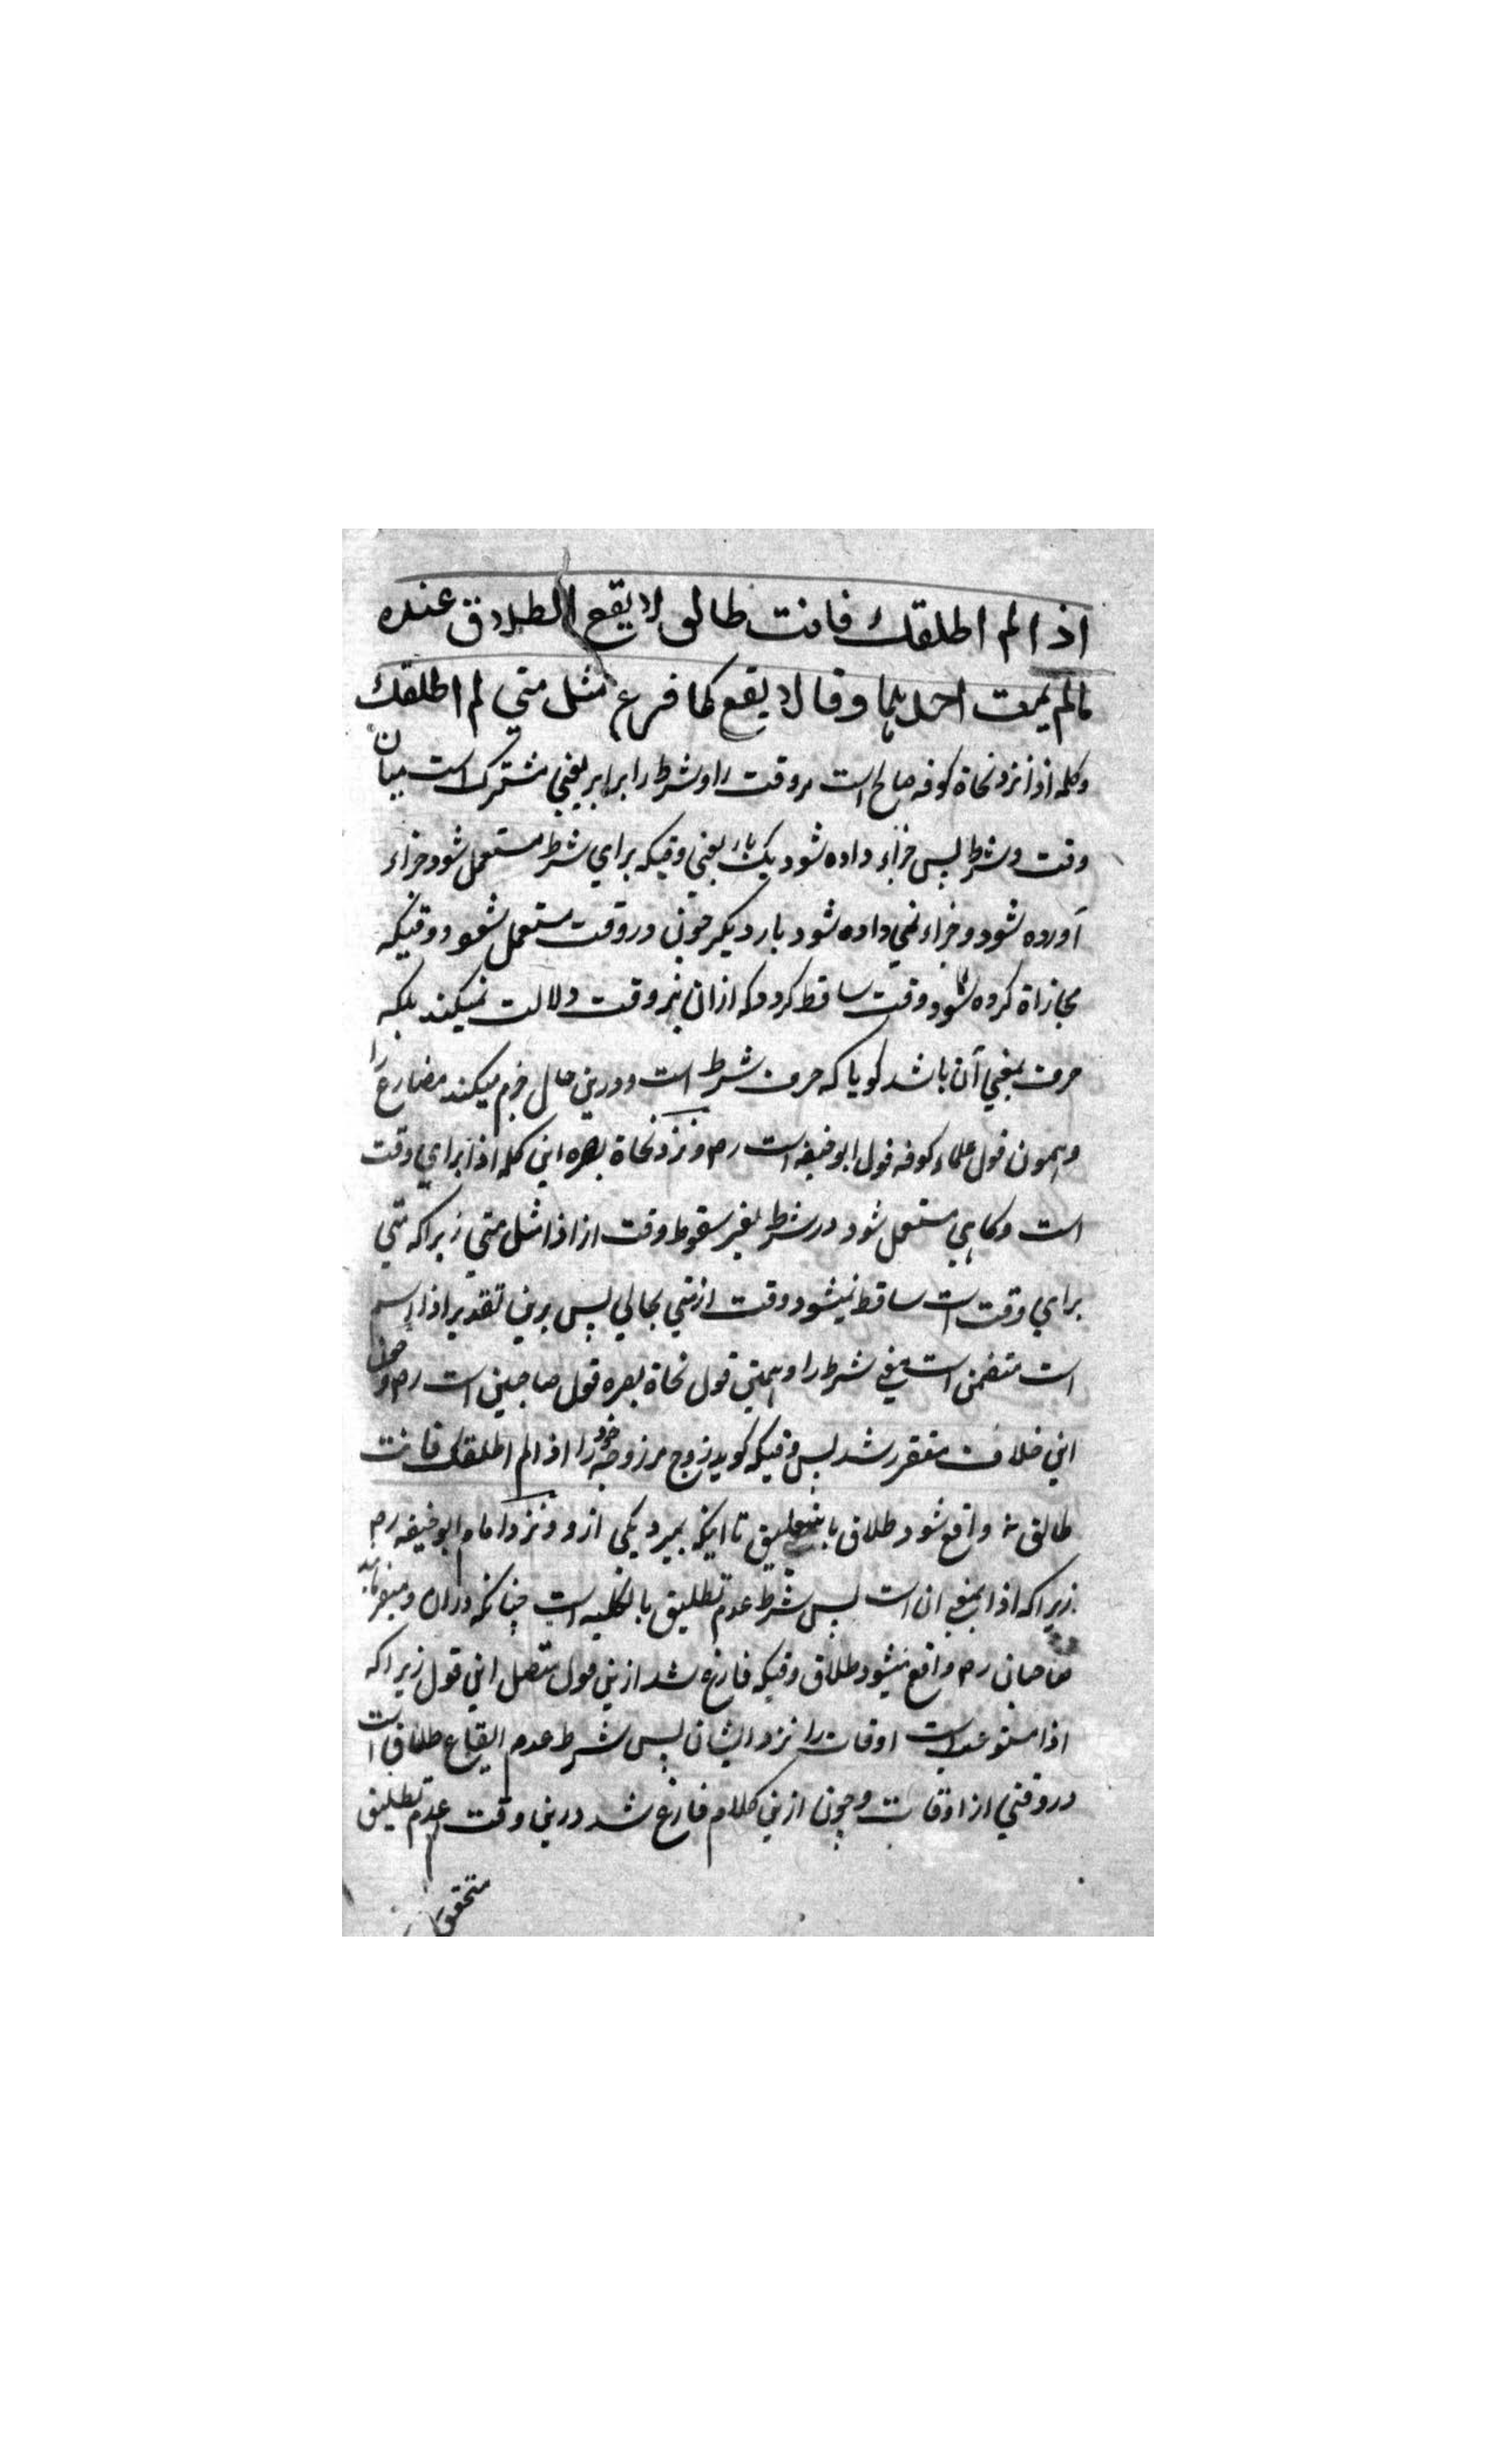 اذا لم اطلقك فانت طالق لا يقع الطلاق عنده
مالم يمت احدهما وقالا يقع كما فرغ مثل متي لم اطلقك
وكلمه اذا نزد نحاة كوفه صالح است مر وقت را وشرط را برابر يعني مشترك است ميان
وقت وشرط پس جزاء داده شود يك بار يعني وقتيكه براي شرط مستعمل شود جزاء
آورده شود و جزاء نمي داده شود بار ديكر چون در وقت مستعمل شود و وقتيكه
مجازاة كرده شود وقت ساقط كردد كه ازان بر وقت دلالت نميكند بلكه
حرف بمعني آن باشد كويا كه حرف شرط است و درين حال جزم ميكند مضارع را
وهمون قول علماء كوفه قول ابو حنيفه است رح و نزد نحاة بصره اين كلمه اذا براي وقت
است وكاهي مستعمل شود در شرط بغير سقوط وقت از اذا مثل متي زيرا كه متي
براي وقت است ساقط نميشود وقت از متي بحالي پس برين تقدير اذا اسم
است متضمن است معني شرط را و همين قول نحاة بصره قول صاحبين است رح و چون
اين خلاف متقرر شد پس وقتيكه كويد زوج مر زوجه خود را اذا لم اطلقك فانت
طالق نه واقع شود طلاق باين تعليق تا اينكه بميرد يكي از دو نزد امام ابو حنيفه رح
زيرا كه اذا بمعني ان است پس شرط عدم تطليق بالكليه است چنانكه دران و ميفرمايد
صاحبان رح واقع ميشود طلاق وقتيكه فارغ شد ازين قول متصل اين قول زيرا كه
اذا مستوعب است اوقات را نزد ايشان پس شرط عدم ايقاع طلاق است
در وقتي از اوقات و چون ازين كلام فارغ شد درين وقت عدم تطليق
متحقق